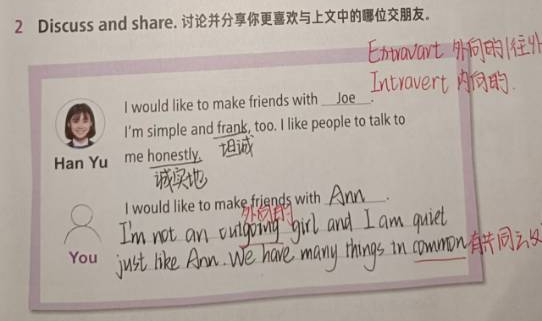 2 Discuss and share. 讨论并分享你更喜欢与上文中的哪位交朋友。
Extravart 外向的 往外
Intravert 内向的.
I would like to make friends with Joe.
I'm simple and frank, too. I like people to talk to
Han Yu
me honestly. 坦诚
诚实地
I would like to make friends with Ann.
外向的
I'm not an outgoing girl and I am quiet
You
just like Ann. We have many things in common 有共同